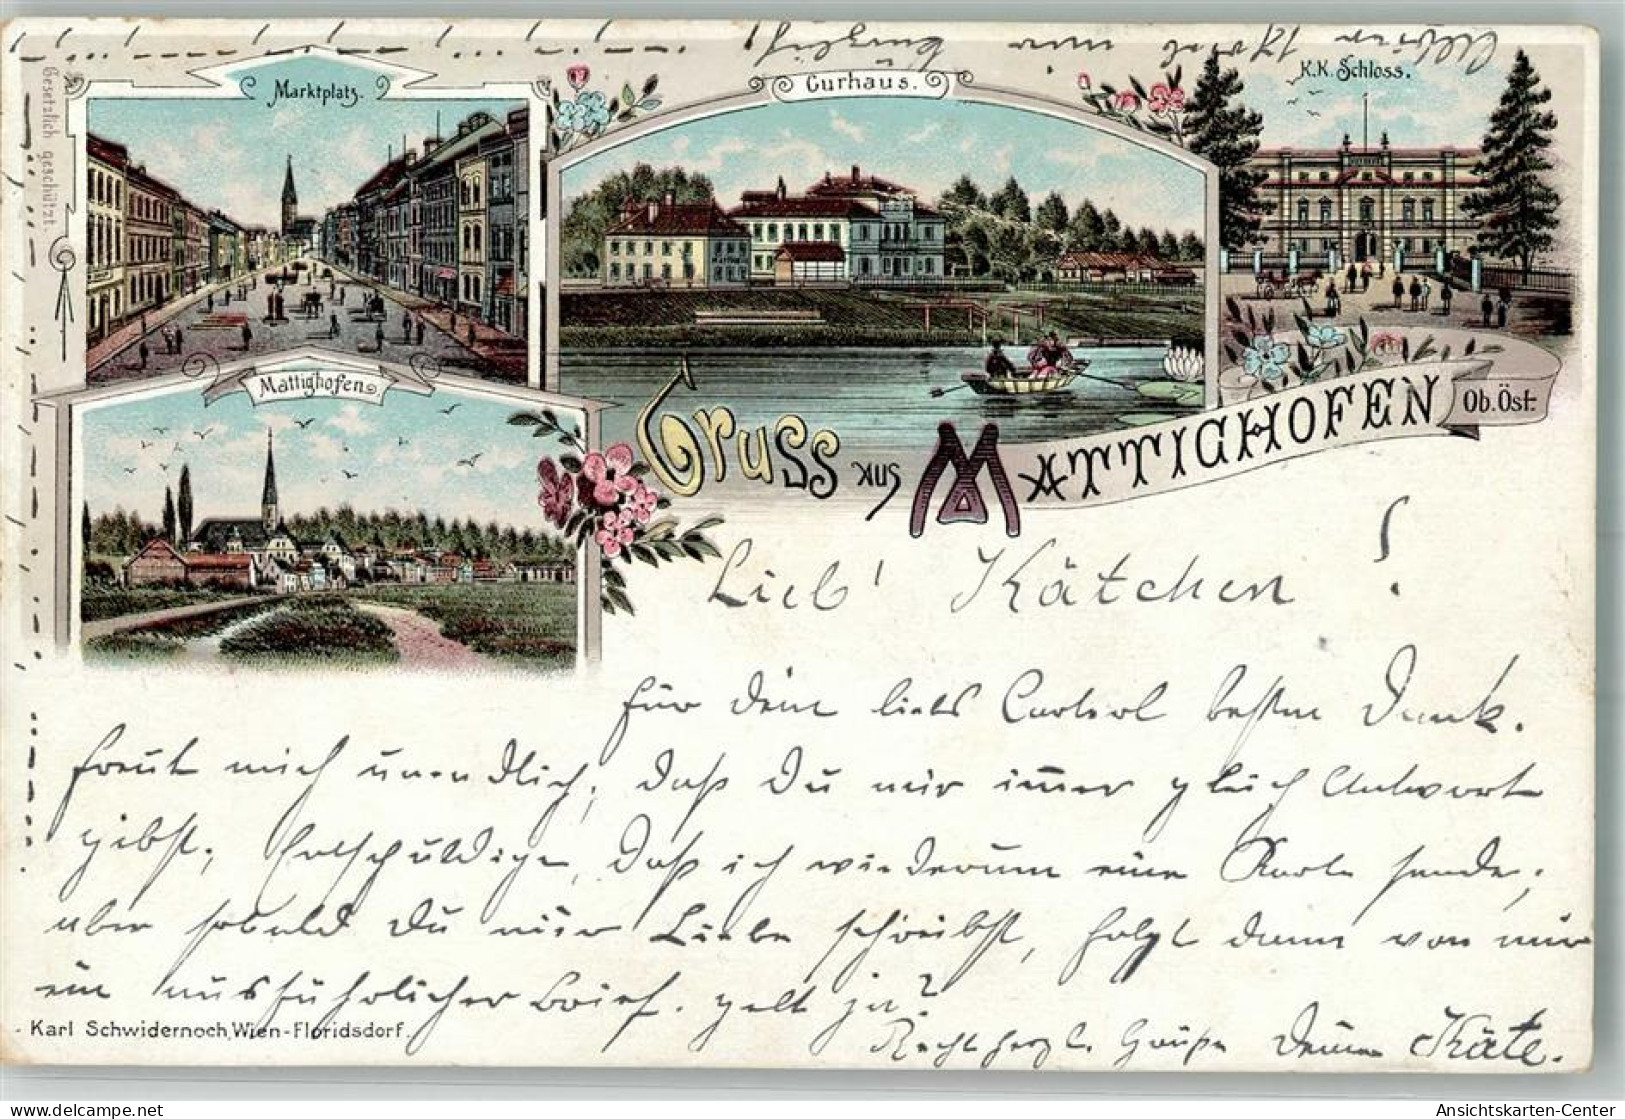 Gesetzlich geschützt.
Marktplatz.
Curhaus.
K.K. Schloss.
Mattighofen
Gruss aus MATTIGHOFEN Ob. Öst.
Lieb' Kätchen!
für Dein liebs Carterl besten Dank.
freut mich unendlich, daß Du mir immer gleich Antwort
gibst; Entschuldige, daß ich wiederum eine Karte sende;
aber sobald Du mir Liebe schreibst, folgt dann von mir
ein ausführlicher Brief. gelt ja?
Recht herzl. Grüße Deine Käte.
Karl Schwidernoch, Wien-Floridsdorf.
Ansichtskarten-Center